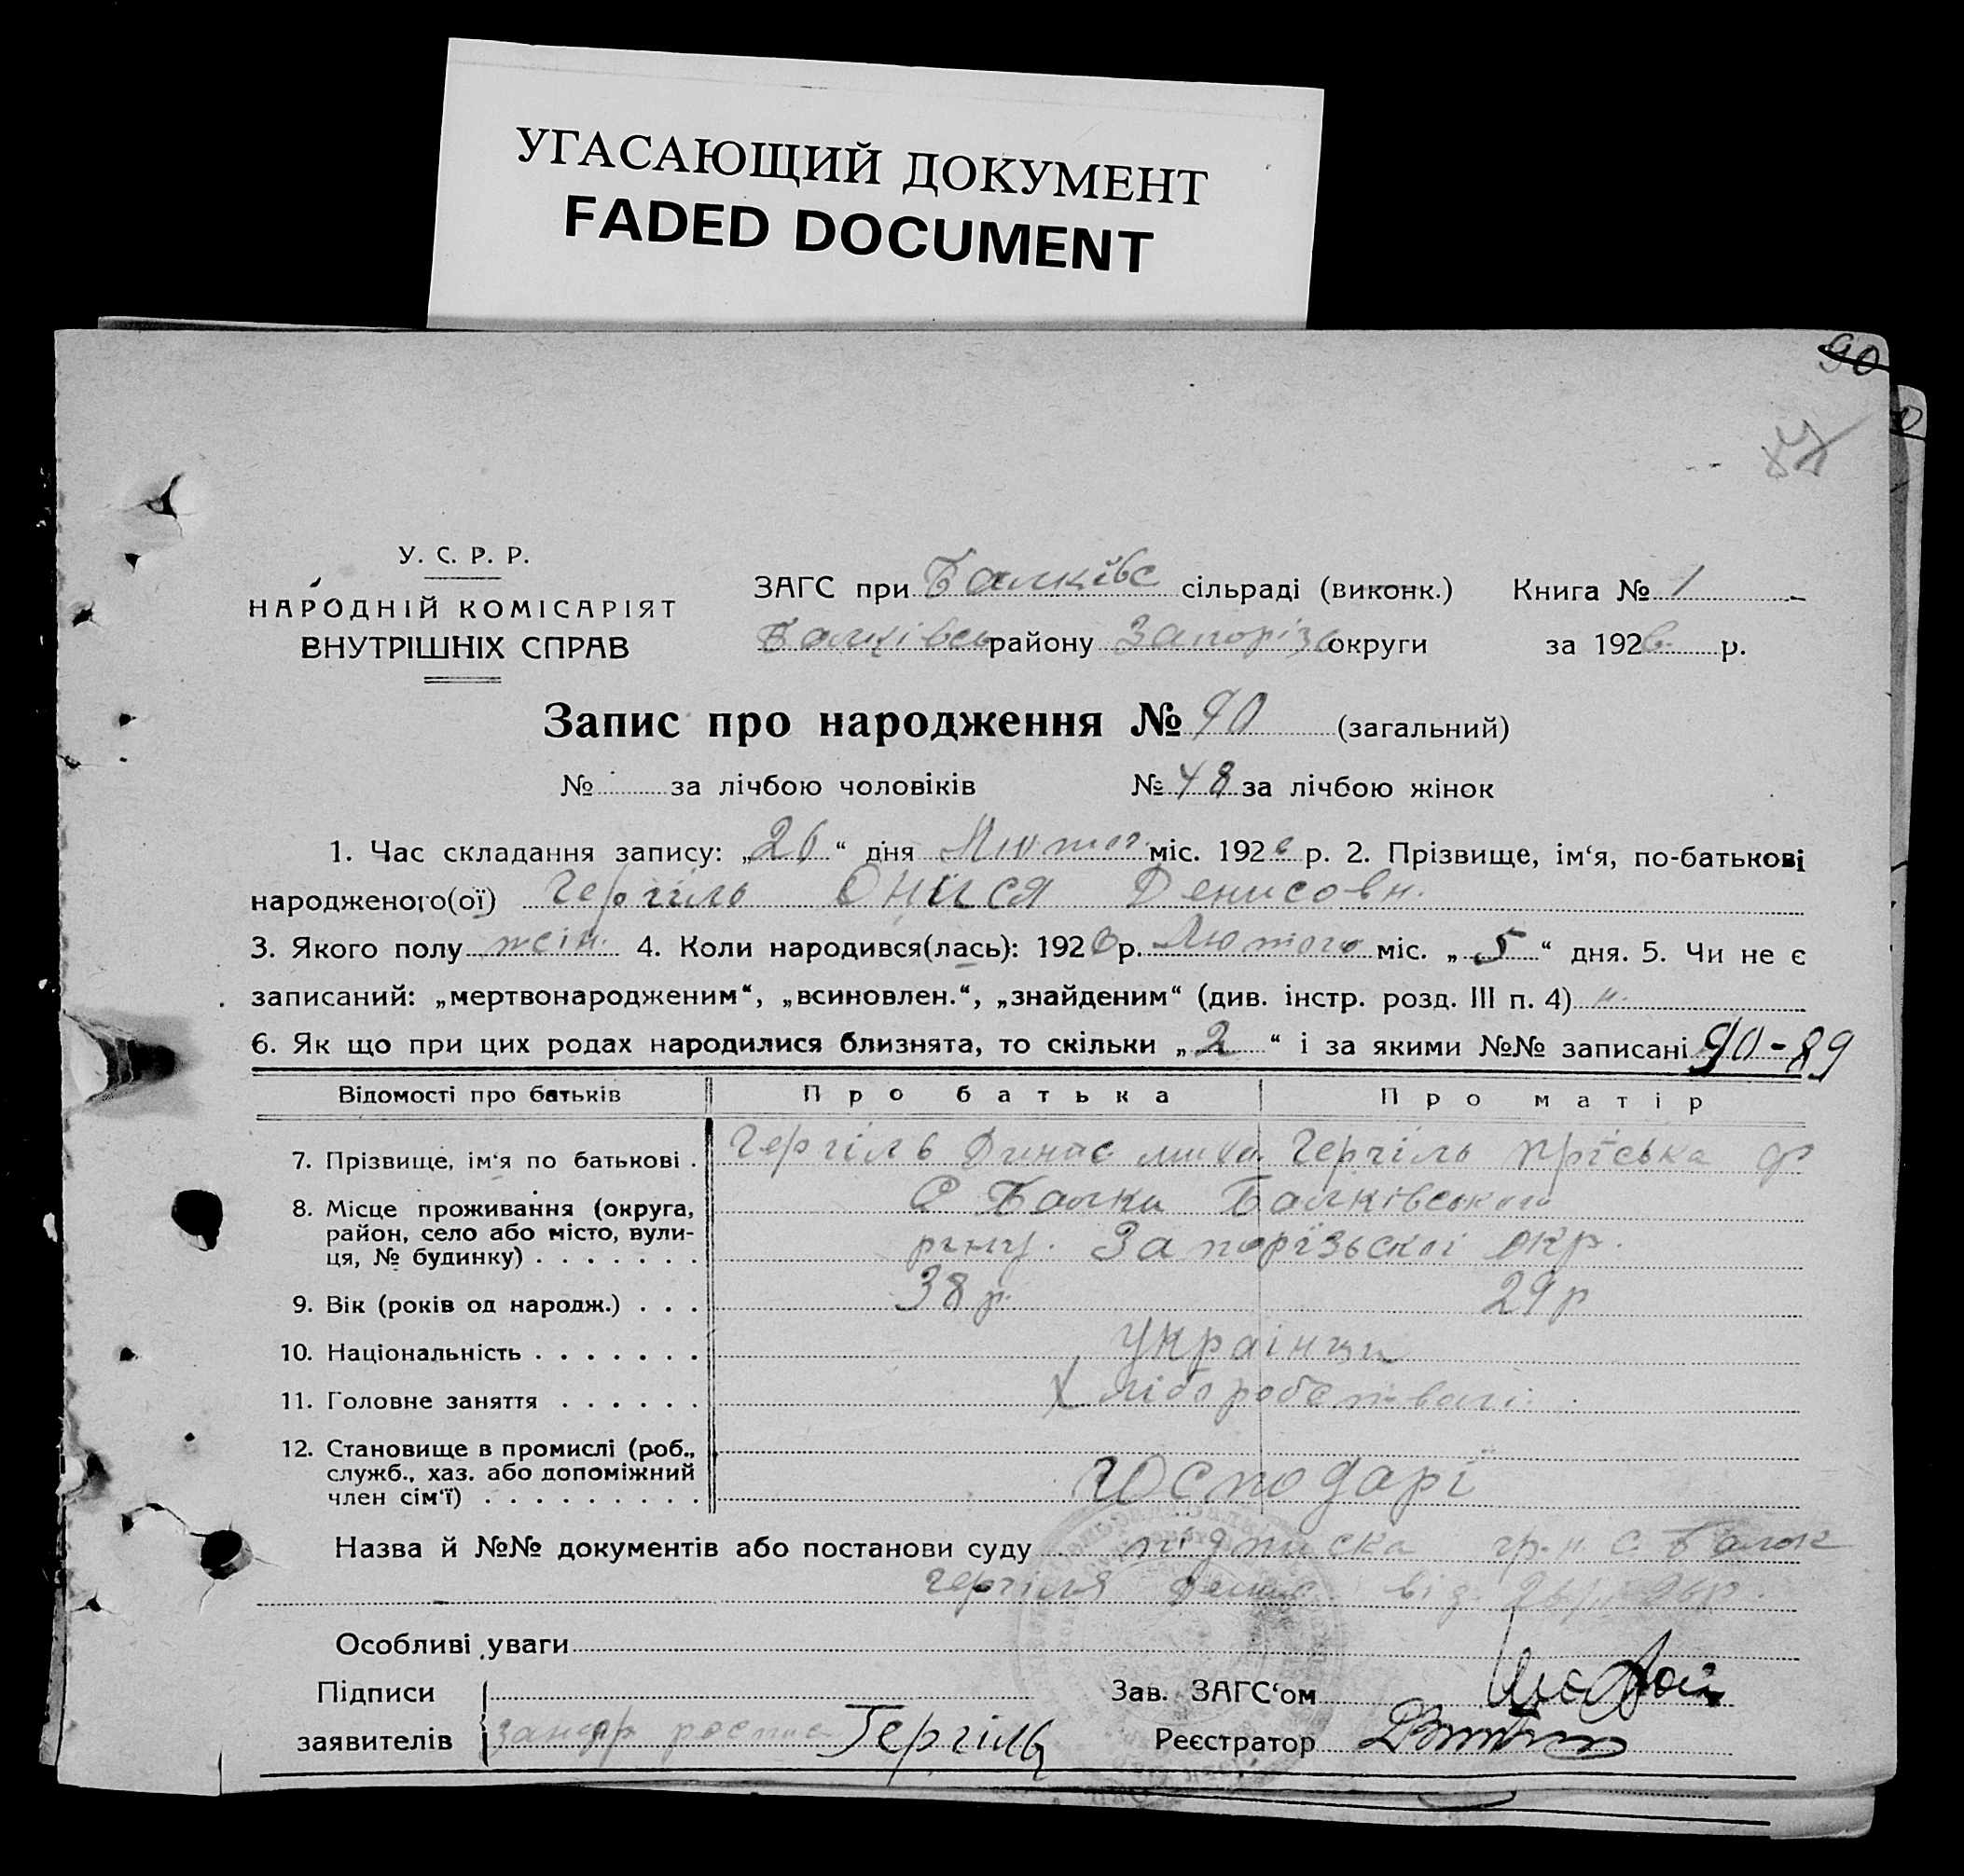 УГАСАЮЩИЙ ДОКУМЕНТ
FADED DOCUMENT
90
87
У. С. Р. Р.
НАРОДНІЙ КОМІСАРІЯТ
ВНУТРІШНІХ СПРАВ
ЗАГС при Балківс сільраді (виконк.) Книга № 1
Балківсь району Запорізь округи за 1926 р.
Запис про народження № 90 (загальний)
№ за лічбою чоловіків № 48 за лічбою жінок
1. Час складання запису: „26“ дня Лютого міс. 1926 р. 2. Прізвище, ім‘я, по-батькові
народженого(ої) Гергіль Онися Денисовн.
3. Якого полу жін. 4. Коли народився(лась): 1926 р. Лютого міс. „5“ дня. 5. Чи не є
записаний: „мертвонародженим“, „всиновлен.“, „знайденим“ (див. інстр. розд. III п. 4) н.
6. Як що при цих родах народилися близнята, то скільки „2“ і за якими №№ записані 90-89
Відомості про батьків Про батька Про матір
7. Прізвище, ім‘я по батькові . Гергіль Гергіль Пріська Ф
8. Місце проживання (округа, С Балки Балківського
район, село або місто, вули-
ця, № будинку) . . . . . . . Запорізьскої окр.
9. Вік (років од народж.) . . . 38 р. 29 р
10. Національність . . . . . . . Українци
11. Головне заняття . . . . . . Хліборобство
12. Становище в промислі (роб.,
служб., хаз. або допоміжний Господарі
член сім‘ї) . . . . . . . . .
Назва й №№ документів або постанови суду підписка гр-н. С. Балок
Гергіля Денис від 26/II 26р.
Особливі уваги
Підписи Зав. ЗАГС‘ом
заявителів Гергіль Реєстратор